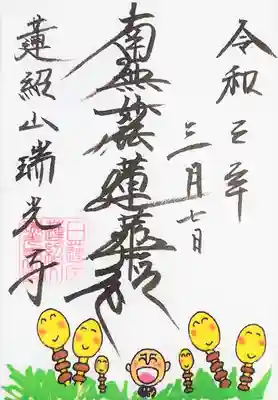 令和三年
三月七日
南無妙法蓮華経
蓮紹山瑞光寺